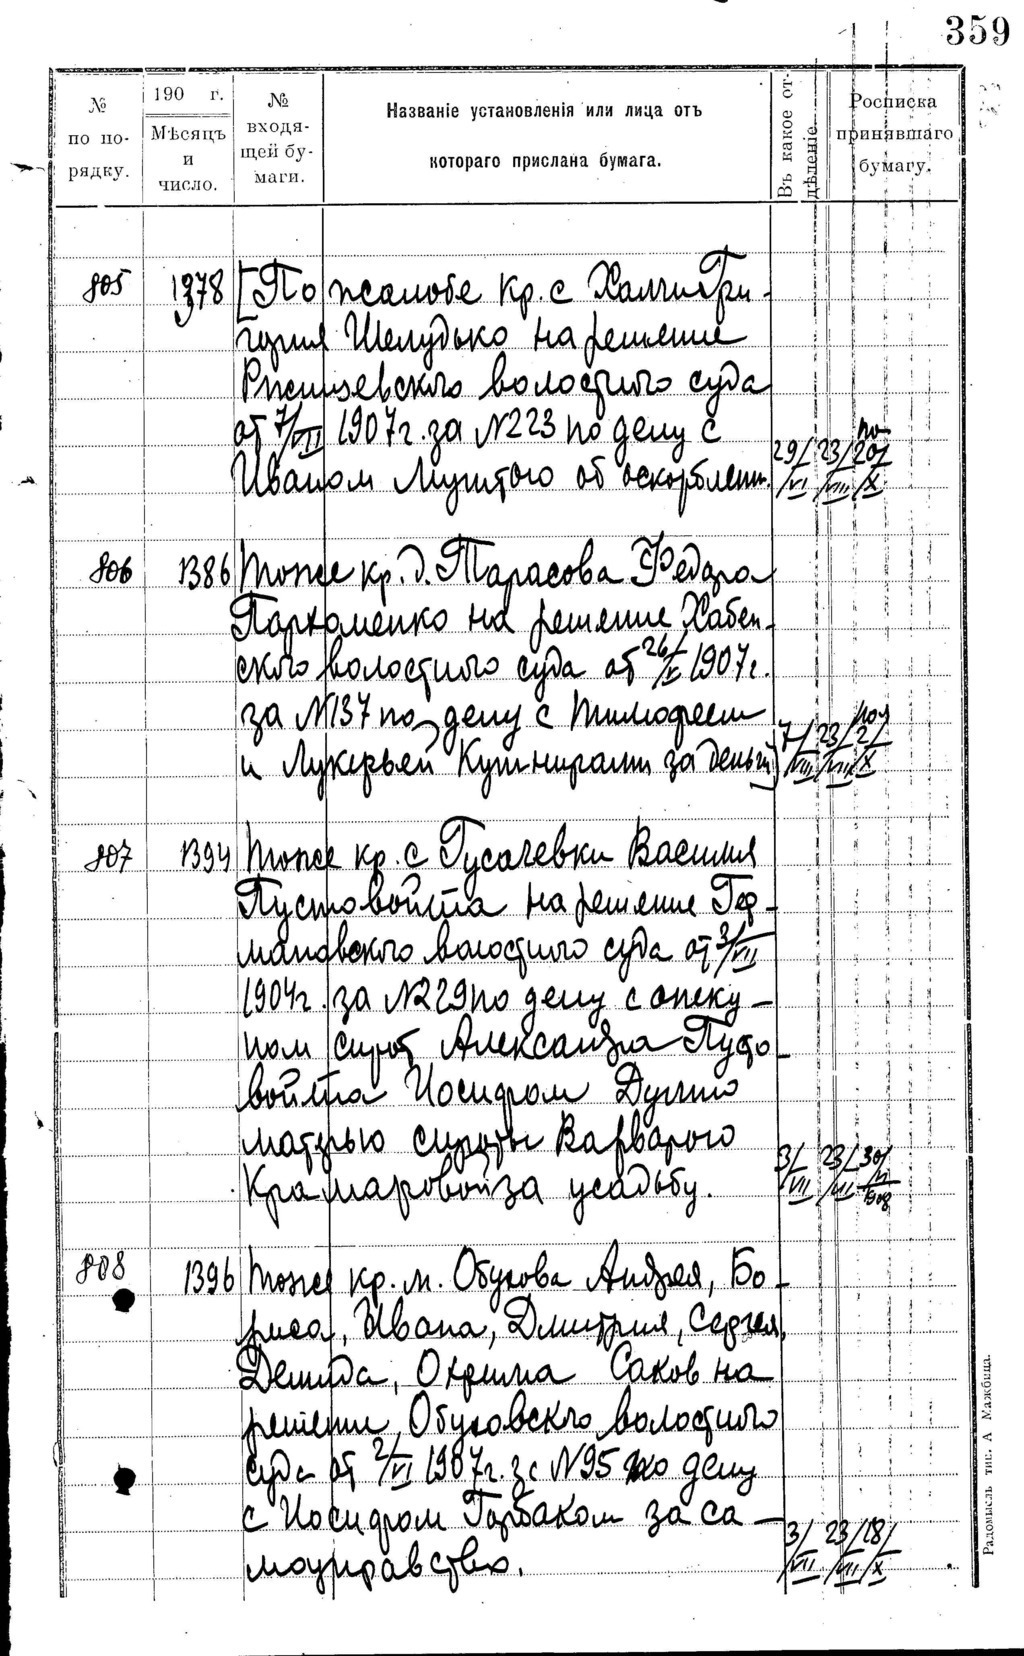 359
№ по по- рядку.
190 г. Мѣсяцъ и число.
№ входя- щей бу- маги.
Названіе установленія или лица отъ котораго прислана бумага.
Въ какое от- дѣленіе.
Росписка принявшаго бумагу.
805 1378 [По жалобе кр. с Халчи Гри-
гория Шелудько на решение
Ржищевского волостного суда
от 7/VII 1907 г. за N 223 по делу с
Иваном об оскорблени. 29/VI 23/VIII 20/X
806 1386 Тоже кр. д. Тарасова Федора
Пархоменко на решение Хабен-
ского волостного суда от 26/V 1907 г.
за N 137 по делу с Тимофеем
и Лукерьей Кушнирами за деньги] 7/VII 23/VIII 2/X
807 1394 Тоже кр. с Гусачевки Василия
Пустовойта на решение Гер-
мановского волостного суда от 3/VII
1904 г. за N 229 по делу с опеку-
ном сирот Александра Пусто-
войта Иосифом
матерью сироты Варварою
Крамаровой за усадьбу. 3/VII 23/VII 30/VI 1908
808 1396 Тоже кр. м. Обухова Андрея, Бо-
риса, Ивана, Дмитрия, Сергея,
Демида, Охрима Саков на
решение Обуховского волостного
суда от 2/VI 1907 г. за N 95 по делу
с Иосифом Горбаком за са-
моуправство. 3/VII 23/VII 18/X
Радомысль тип. А Мажбица.